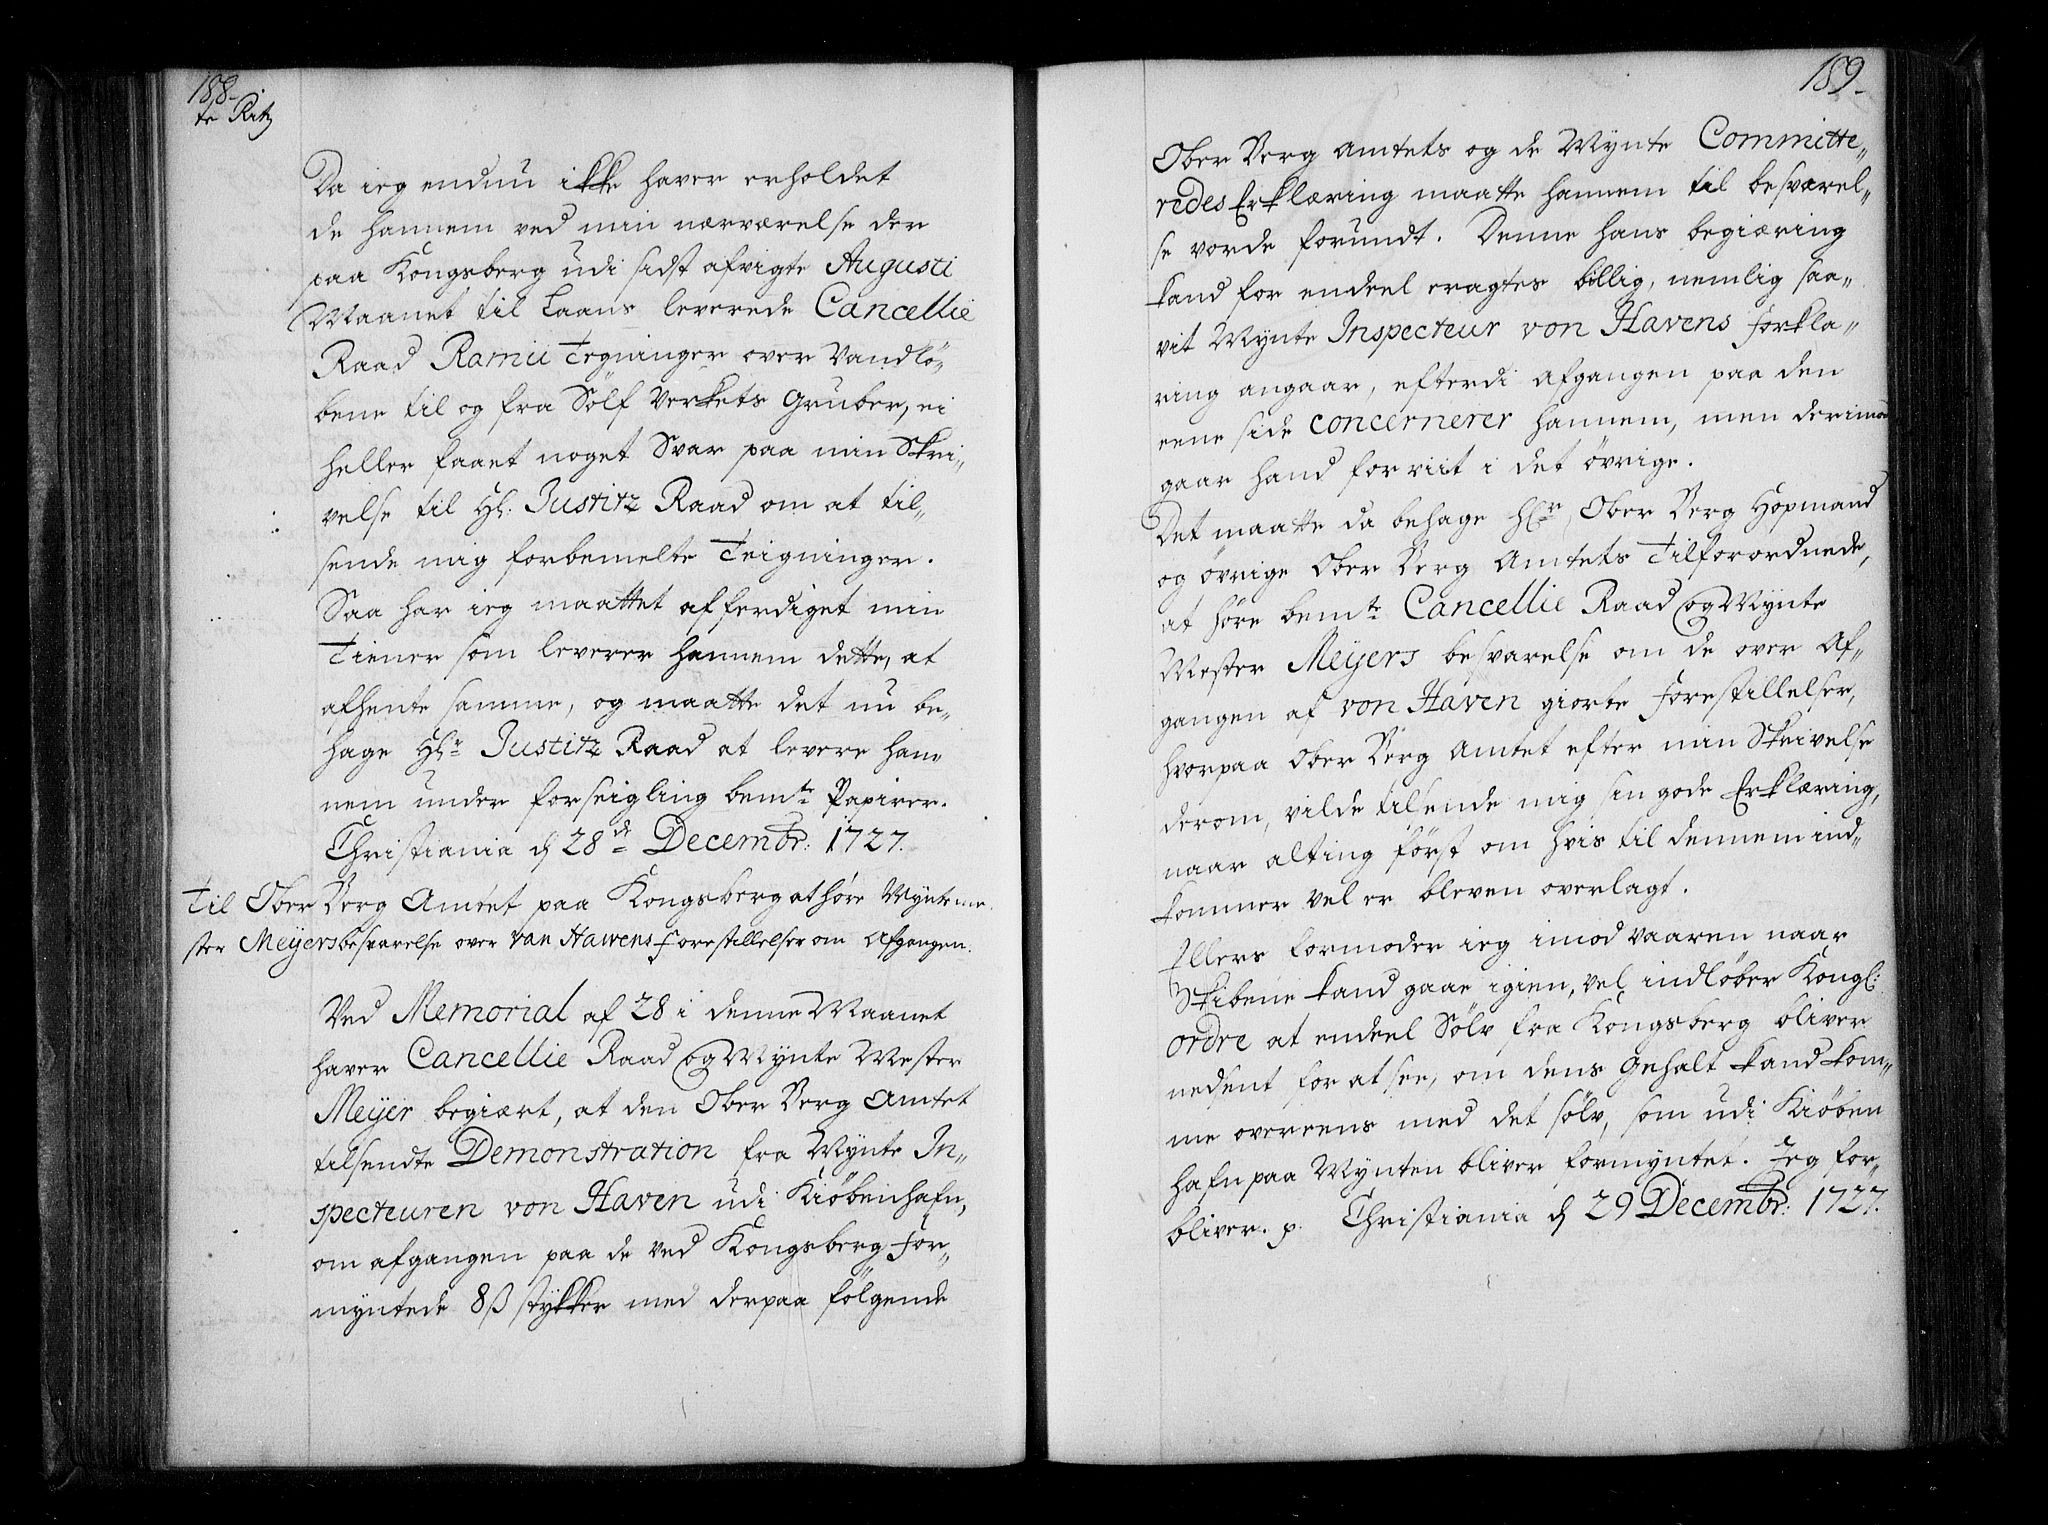 188.
te Ritz
Da ieg endnu ikke haver erholdet
de hannem ved min nærværelse der
paa Kongsberg udi sidst afvigte Augusti
Maanet til Laans leverede Cancellie
Raad Ramii Tegninger over Vandlø„
bene til og fra Sølf Verkets Gruber, ei
heller faaet noget Svar paa min Skri„
velse til Hl: Justitz Raad om at til„
sende mig forbemelte Teigninger.
Saa har ieg maattet afferdiget min
Tiener som leverer hannem dette, at
afhente samme, og maatte det nu be„
hage Hlr Justitz Raad at levere han„
nem under forseigling bemte Papirer.
Christiania d 28de Decembr: 1727.
Til Ober Berg Amtet paa Kongsberg at høre Mynteme„
ster Meyers besvarelse over van Hawens forestillelser om Afgangen.
Ved Memorial af 28 i denne Maanet
haver Cancellie Raad og Mynte Mester
Meyer begiært, at den Ober Berg Amtet
tilsendte Demonstration fra Mynte In„
specteuren von Haven udi Kiøbenhafn,
om afgangen paa de ved Kongsberg for„
myntede 8ß stykker med derpaa følgende
189.
Ober Berg Amtets og de Mynte Committe„
redes Erklæring maatte hannem til besvarel„
se vorde forundt. Denne hans begiæring
kand for endeel eragtes billig, nemlig saa„
vit Mynte Inspecteur von Havens forkla„
ring angaar, efterdi afgangen paa den
eene side concernerer hannem, men derimod
gaar hand for viit i det øvrige.
Det maatte da behage Hlr Ober Berg Hopmand
og øvrige Ober Berg Amtets Tilforordnede,
at høre bemte Cancellie Raad og Mynte
Mester Meyers besvarelse om de over Af„
gangen af von Haven giorte forestillelser,
hvorpaa Ober Berg Amtet efter min Skrivelse
derom, vilde tilsende mig sin gode Erklæring,
naar alting først om hvis til dennem ind„
kommer vel er bleven overlagt.
Ellers formoder ieg imod vaaren naar
Skibene kand gaae igien, vel indløber Kongl:
ordre at endeel Sølv fra Kongsberg bliver
nedsent for at see, om dens Gehalt kand kom„
me overeens med det sølv, som udi Kiøben
hafn paa Mynten bliver formyntet. Jeg for„
bliver. p. Christiania d 29 Decembr: 1727.